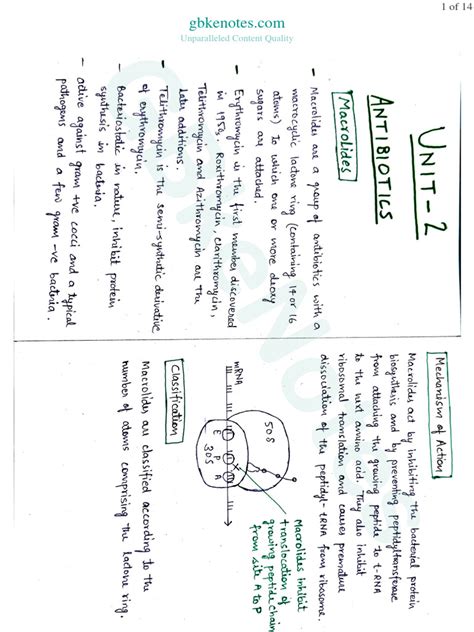 1 of 14
gbkenotes.com
Unparalleled Content Quality
UNIT-2
ANTIBIOTICS
Macrolides
- Macrolides are a group of antibiotics with a
macrocyclic lactone ring (containing 14 or 16
atoms) To which one or more deoxy
sugars are attached.
- Erythromycin is the first member discovered
in 1952, Roxithromycin, clarithromycin,
Telithromycin and Azithromycin are The
later additions.
- Telithromycin is The semi-synthetic derivative
of erythromycin.
- Bacteriostatic in nature, inhibit protein
synthesis in bacteria.
- active against gram +ve cocci and a typical
pathogens and a few gram -ve bacteria.
Mechanism of Action
Macrolides act by inhibiting The bacterial protein
biosynthesis and by preventing peptidyltransferase
from attaching the growing peptide to t-RNA
to the next amino acid. They also inhibit
ribosomal translation and causes premature
dissociation of the peptidyl-tRNA from ribosome.
50S
E P A
30S
mRNA
Macrolides inhibit
translocation of
growing peptide chain
from site A to P
Classification
Macrolides are classified according to the
number of atoms comprising the lactone ring.